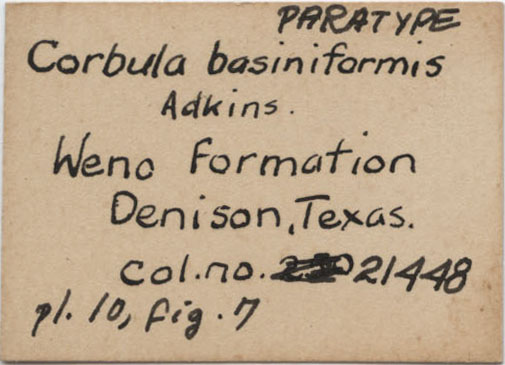 PARATYPE
Corbula basiniformis
Adkins.
Weno Formation
Denison, Texas.
col. no. 21448
pl. 10, fig. 7